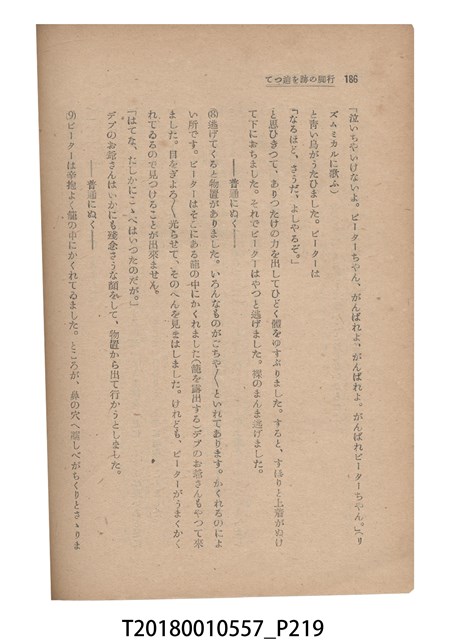 行脚の跡を踏つて 186
「泣いちやいけないよ。ピーターちやん、がんばれよ、がんばれよ。がんばれピーターちやん。」(リ
ズムミカルに歌ふ)
と青い鳥がうたひました。ピーターは
「なるほど、さうだ、よしやるぞ。」
と思ひきつて、ありつたけの力を出してひどく體をゆすぶりました。すると、すぽりと上着がぬけ
て下におちました。それでピーターはやつと逃げました。裸のまんま逃げました。
――普通にぬく――
逃げてくると物置がありました。いろんなものがごちや〳〵といれてあります。かくれるのによ
い所です。ピーターはそこにある籠の中にかくれました(籠を露出する)デブのお爺さんもやつて來
ました。目をぎよろ〳〵光らせて、そのへんを見まはしました。けれども、ピーターがうまくかく
れてゐるので見つけることが出來ません。
「はてな、たしかにこゝへはいつたのだが。」
デブのお爺さんはいかにも殘念さうな顏をして、物置から出て行かうとしました。
――普通にぬく――
(9)ピーターは幸抱よく籠の中にかくれてゐました。ところが、鼻の穴へ藁しべがちくりとさゝりま
T20180010557_P219